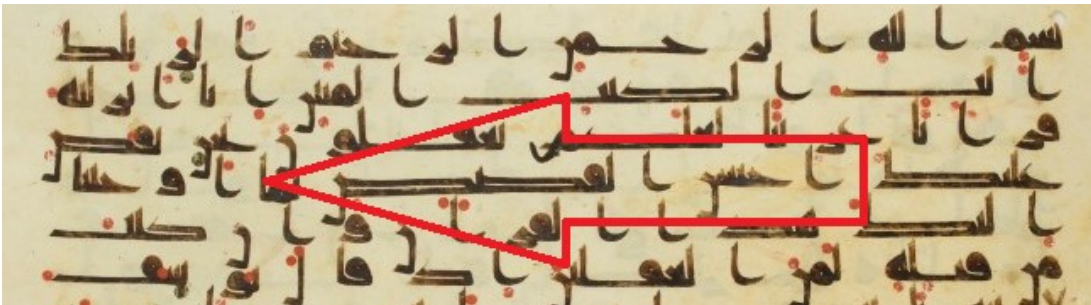 بسم الله الرحمن الرحيم الر تلك
ايت الكتب المبين انا انزلنه
قرانا عربيا لعلكم تعقلون نحن نقص
عليك احسن القصص بما اوحينا
اليك هذا القران وان كنت
من قبله لمن الغفلين اذ قال يوسف